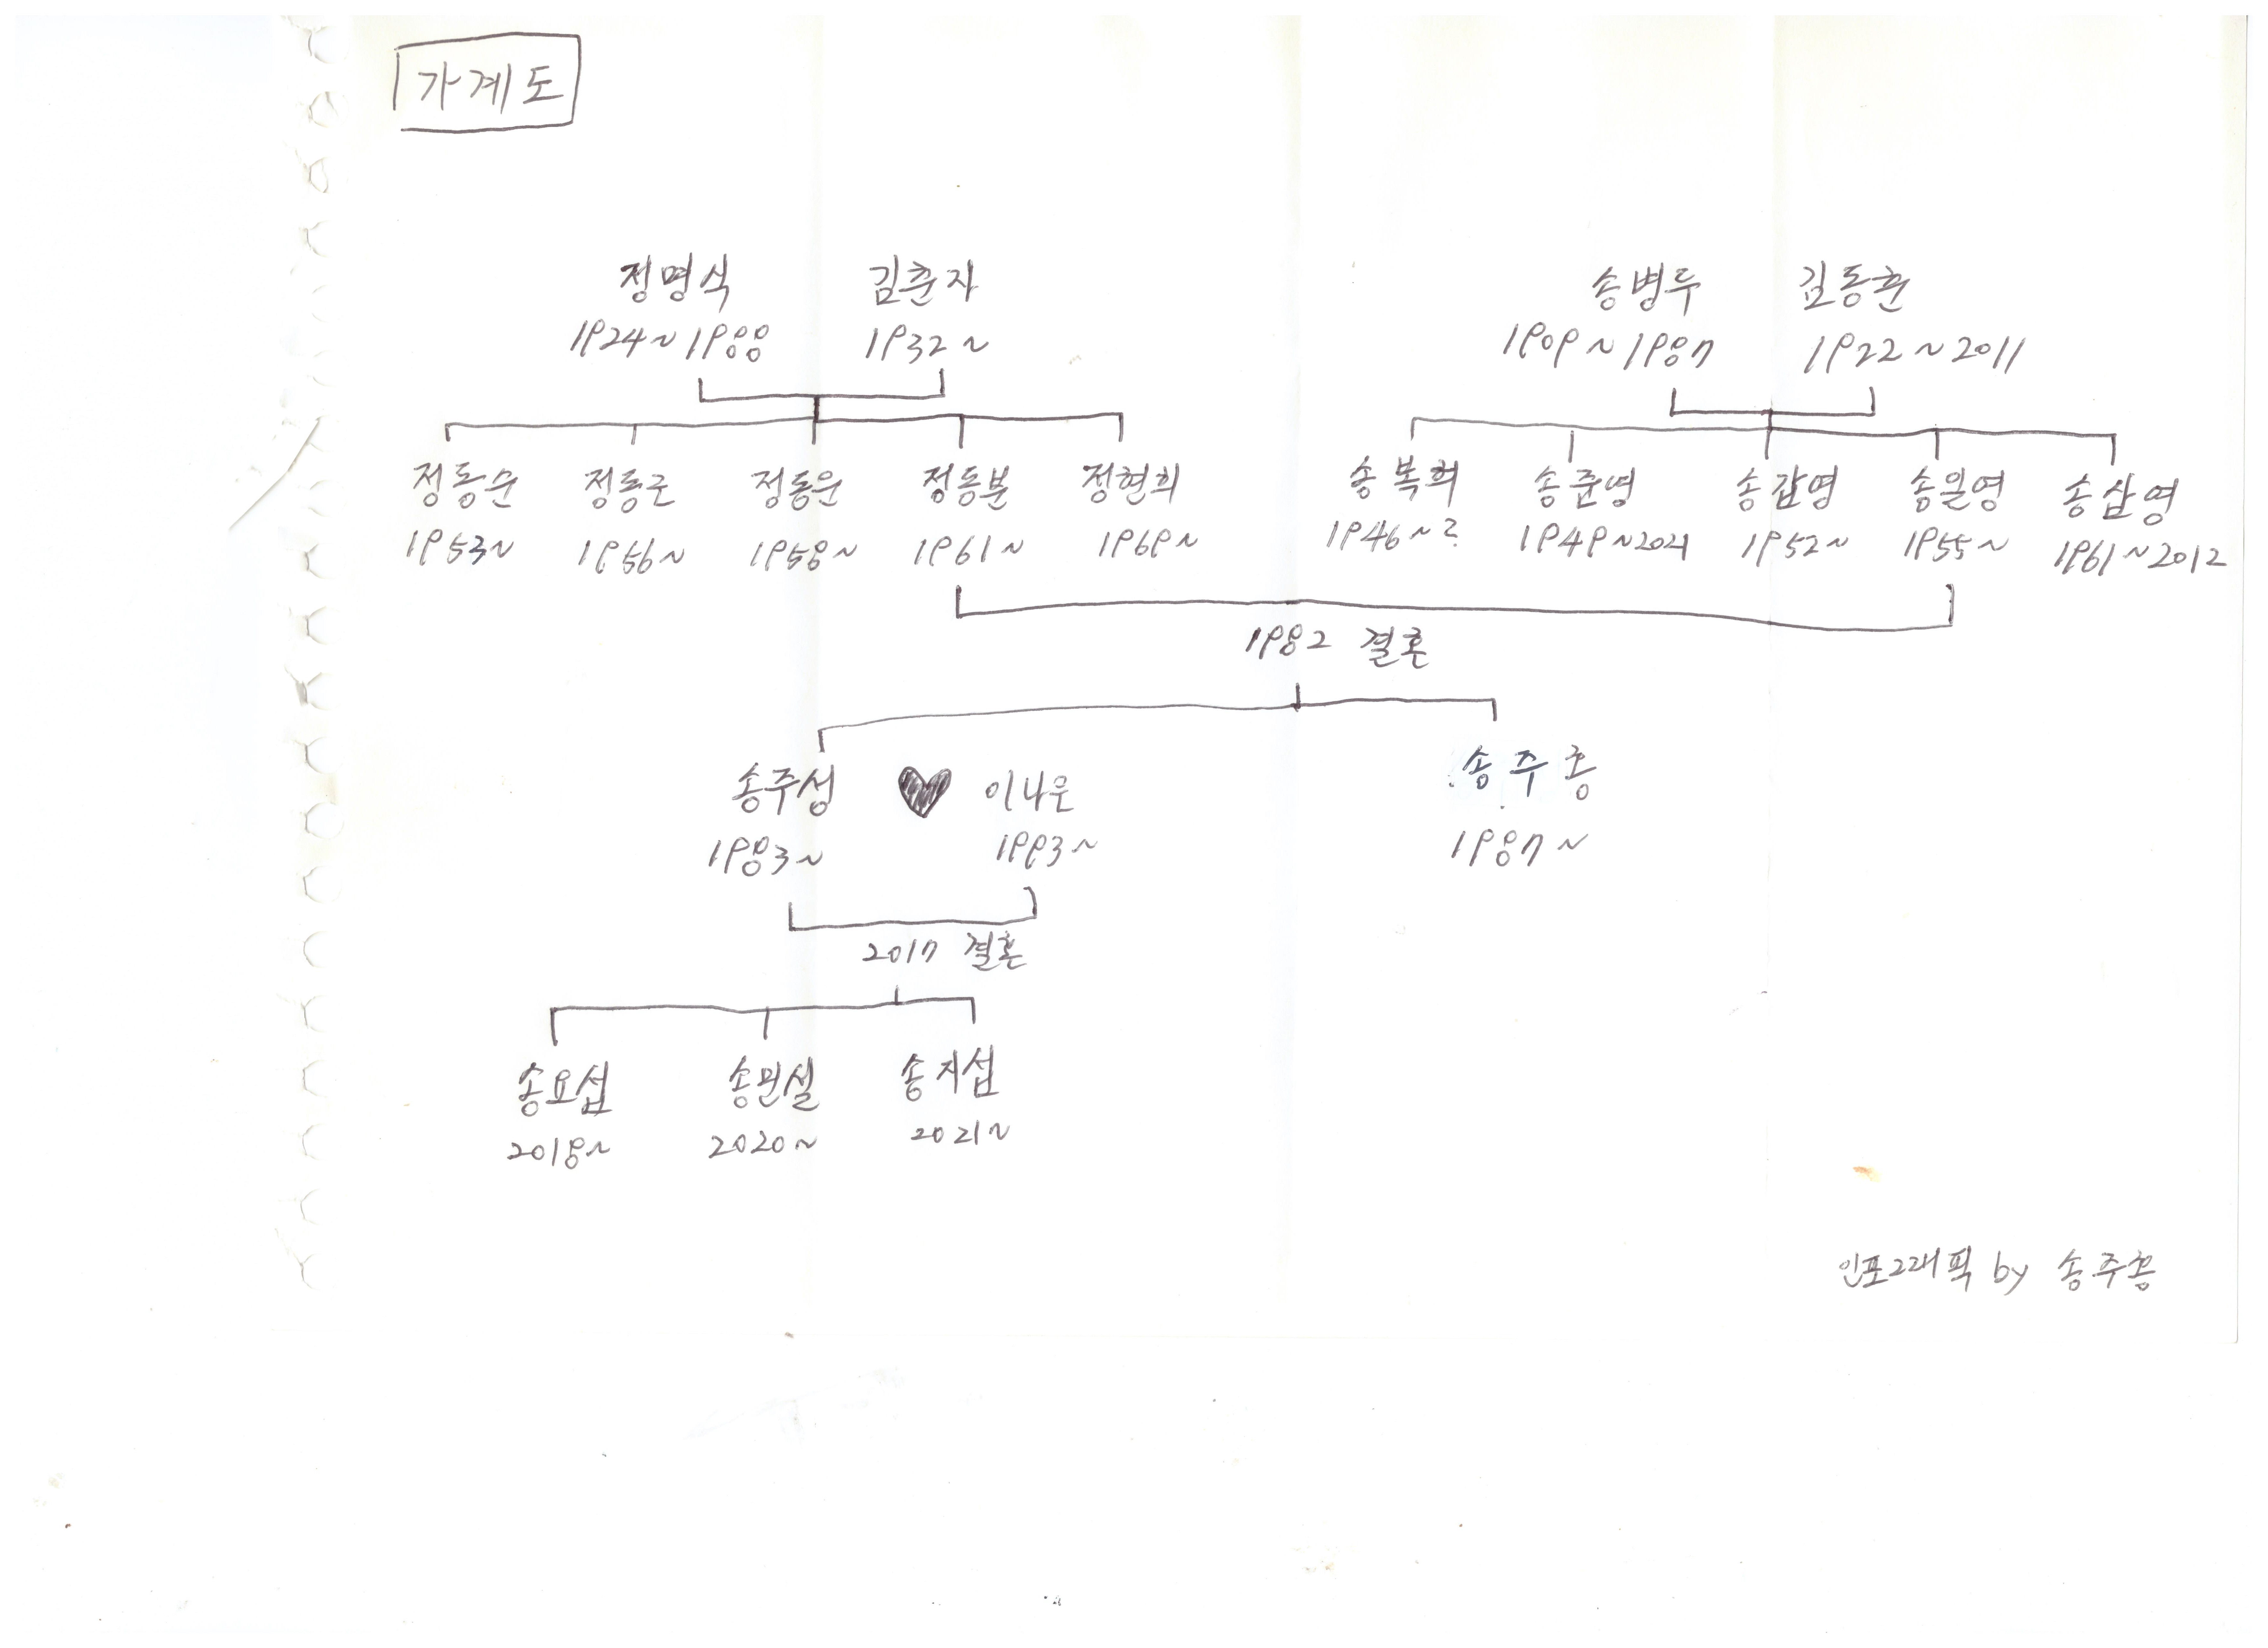 가계도
정명식 김춘자 송병두 김동춘
1924~1988 1932~ 1909~1987 1922~2011
정동순 정동근 정동운 정동분 정현희 송복희 송준영 송갑영 송일영 송삼영
1953~ 1956~ 1958~ 1961~ 1969~ 1946~? 1949~2021 1952~ 1955~ 1961~2012
1982 결혼
송주성 이나은 송주홍
1983~ 1993~ 1987~
2017 결혼
송요섭 송민설 송지섭
2018~ 2020~ 2021~
인포그래픽 by 송주홍